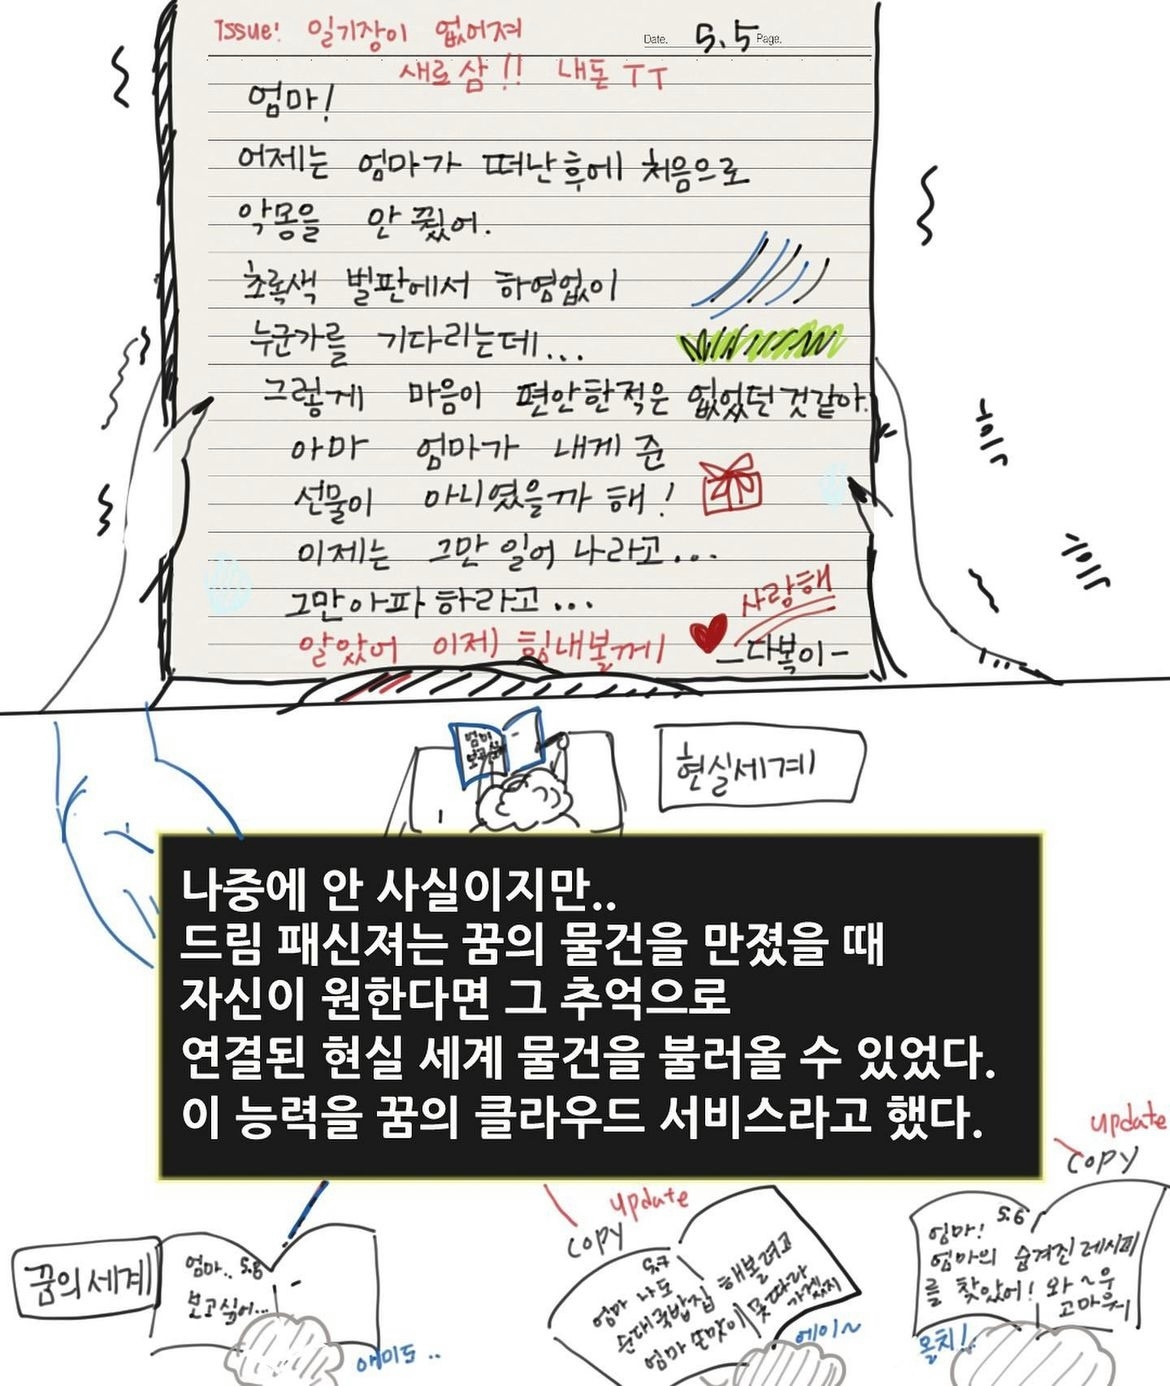 Issue: 일기장이 없어져
Date. 5.5 Page.
새로 삼!! 내돈 ㅜㅜ
엄마!
어제는 엄마가 떠난 후에 처음으로
악몽을 안 꿨어.
초록색 벌판에서 하염없이
누군가를 기다리는데...
그렇게 마음이 편안한적은 없었던것같아.
아마 엄마가 내게 준
선물이 아니였을까 해!
이제는 그만 일어나라고...
그만아파 하라고...
사랑해
알았어 이제 힘내볼께
-다복이-
엄마
현실세계
나중에 안 사실이지만..
드림 패신져는 꿈의 물건을 만졌을 때
자신이 원한다면 그 추억으로
연결된 현실 세계 물건을 불러올 수 있었다.
이 능력을 꿈의 클라우드 서비스라고 했다.
꿈의세계
엄마.. 5.5
보고싶어...
애미도..
update
copy
5.7
엄마 나도
순대국밥집 해볼려고
엄마 손맛이 못따라
가겠지
에이~
update
copy
5.6
엄마!
엄마의 숨겨진 레시피
를 찾았어! 와~우
고마워
옳치!